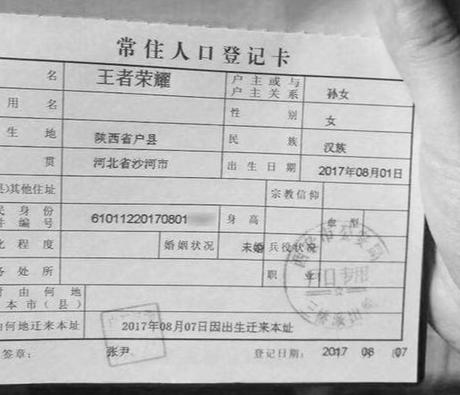 常住人口登记卡
名 王者荣耀 户主或与户主关系 孙女
用名 性别 女
生地 陕西省户县 民族 汉族
贯 河北省沙河市 出生日期 2017年08月01日
其他住址 宗教信仰
民身份件编号 61011220170801 身高 血型
化程度 婚姻状况 未婚 兵役状况
务处所 职业
何时由何地迁来本市(县)
由何地迁来本址 2017年08月07日因出生迁来本址
签章: 张尹 登记日期: 2017 08 07